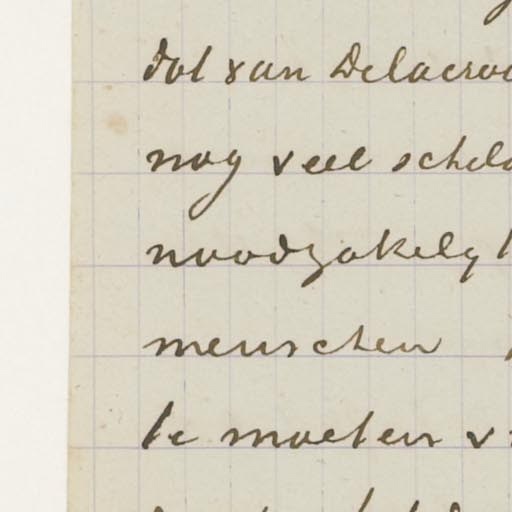 dat van Delacroi
nog veel schild
noodzakelyk
menschen
te moeten v